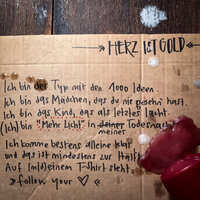 HERZ IST GOLD
Ich bin der Typ mit den 1000 Ideen.
Ich bin das Mädchen, das du nie gesehn hast.
Ich bin das Kind, das als letztes lacht.
(Ich) bin "Mehr Licht" in deiner Todesnacht
meiner
Ich komme bestens alleine klar
und das ist mindestens zur Hälfte
Auf (m)deinem T-Shirt steht
»follow your ♡«